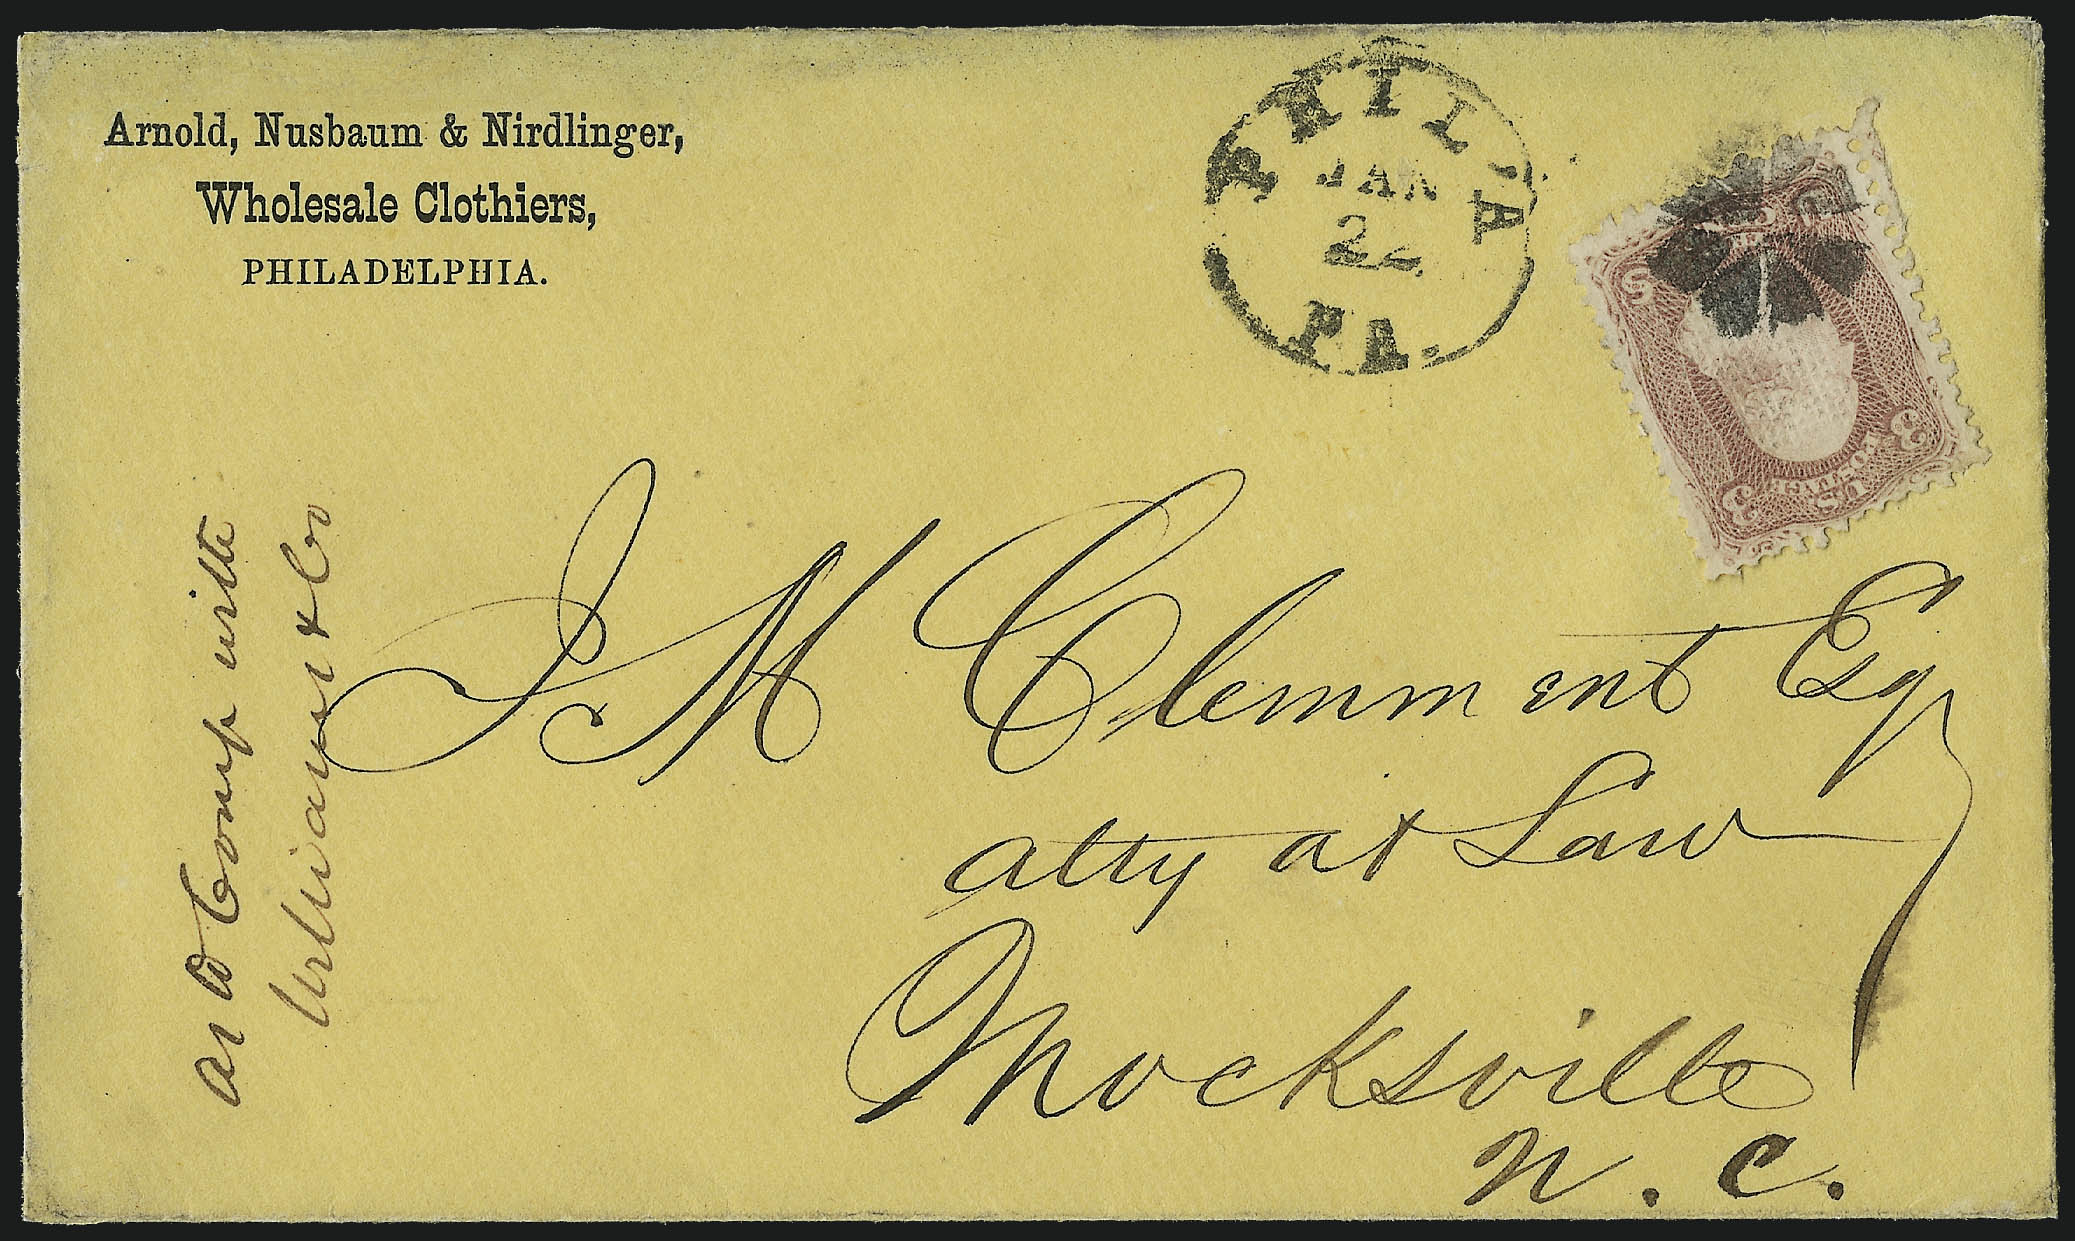 Arnold, Nusbaum & Nirdlinger,
Wholesale Clothiers,
PHILADELPHIA.
PHIL'A
JAN
PA.
U.S.
POSTAGE
3 3
J. M Clemment Esq
atty at Law
Mocksville
N. C.
Comp with
& Co